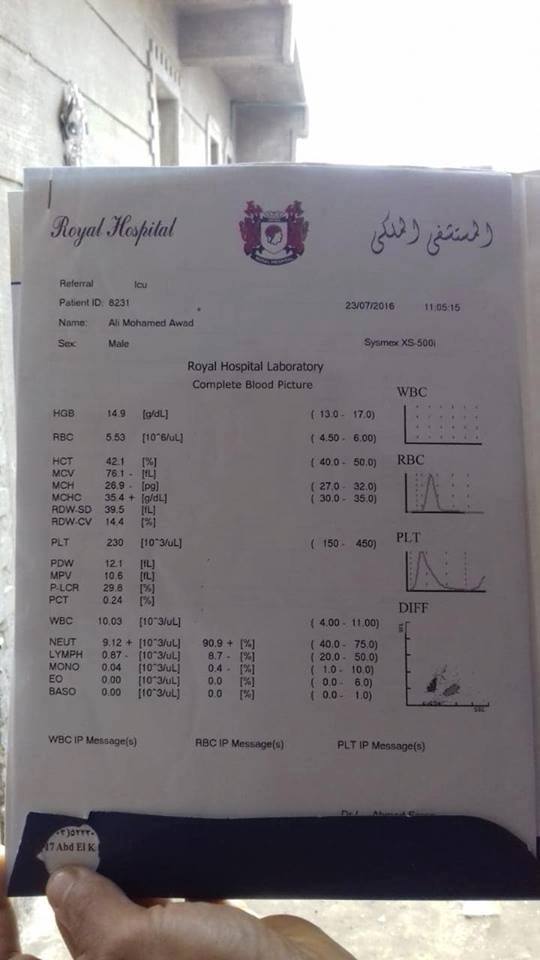 Royal Hospital
المستشفى الملكى
Referral Icu
Patient ID: 8231
23/07/2016 11:05:15
Name: Ali Mohamed Awad
Sex: Male
Sysmex XS-500i
Royal Hospital Laboratory
Complete Blood Picture
WBC
HGB 14.9 [g/dL] ( 13.0 - 17.0)
RBC 5.53 [10^6/uL] ( 4.50 - 6.00)
RBC
HCT 42.1 [%] ( 40.0 - 50.0)
MCV 76.1 - [fL]
MCH 26.9 - [pg] ( 27.0 - 32.0)
MCHC 35.4 + [g/dL] ( 30.0 - 35.0)
RDW-SD 39.5 [fL]
RDW-CV 14.4 [%]
PLT 230 [10^3/uL] ( 150 - 450)
PLT
PDW 12.1 [fL]
MPV 10.6 [fL]
P-LCR 29.8 [%]
PCT 0.24 [%]
DIFF
WBC 10.03 [10^3/uL] ( 4.00 - 11.00)
NEUT 9.12 + [10^3/uL] 90.9 + [%] ( 40.0 - 75.0)
LYMPH 0.87 - [10^3/uL] 8.7 - [%] ( 20.0 - 50.0)
MONO 0.04 [10^3/uL] 0.4 - [%] ( 1.0 - 10.0)
EO 0.00 [10^3/uL] 0.0 [%] ( 0.0 - 6.0)
BASO 0.00 [10^3/uL] 0.0 [%] ( 0.0 - 1.0)
WBC IP Message(s) RBC IP Message(s) PLT IP Message(s)
17 Abd El K